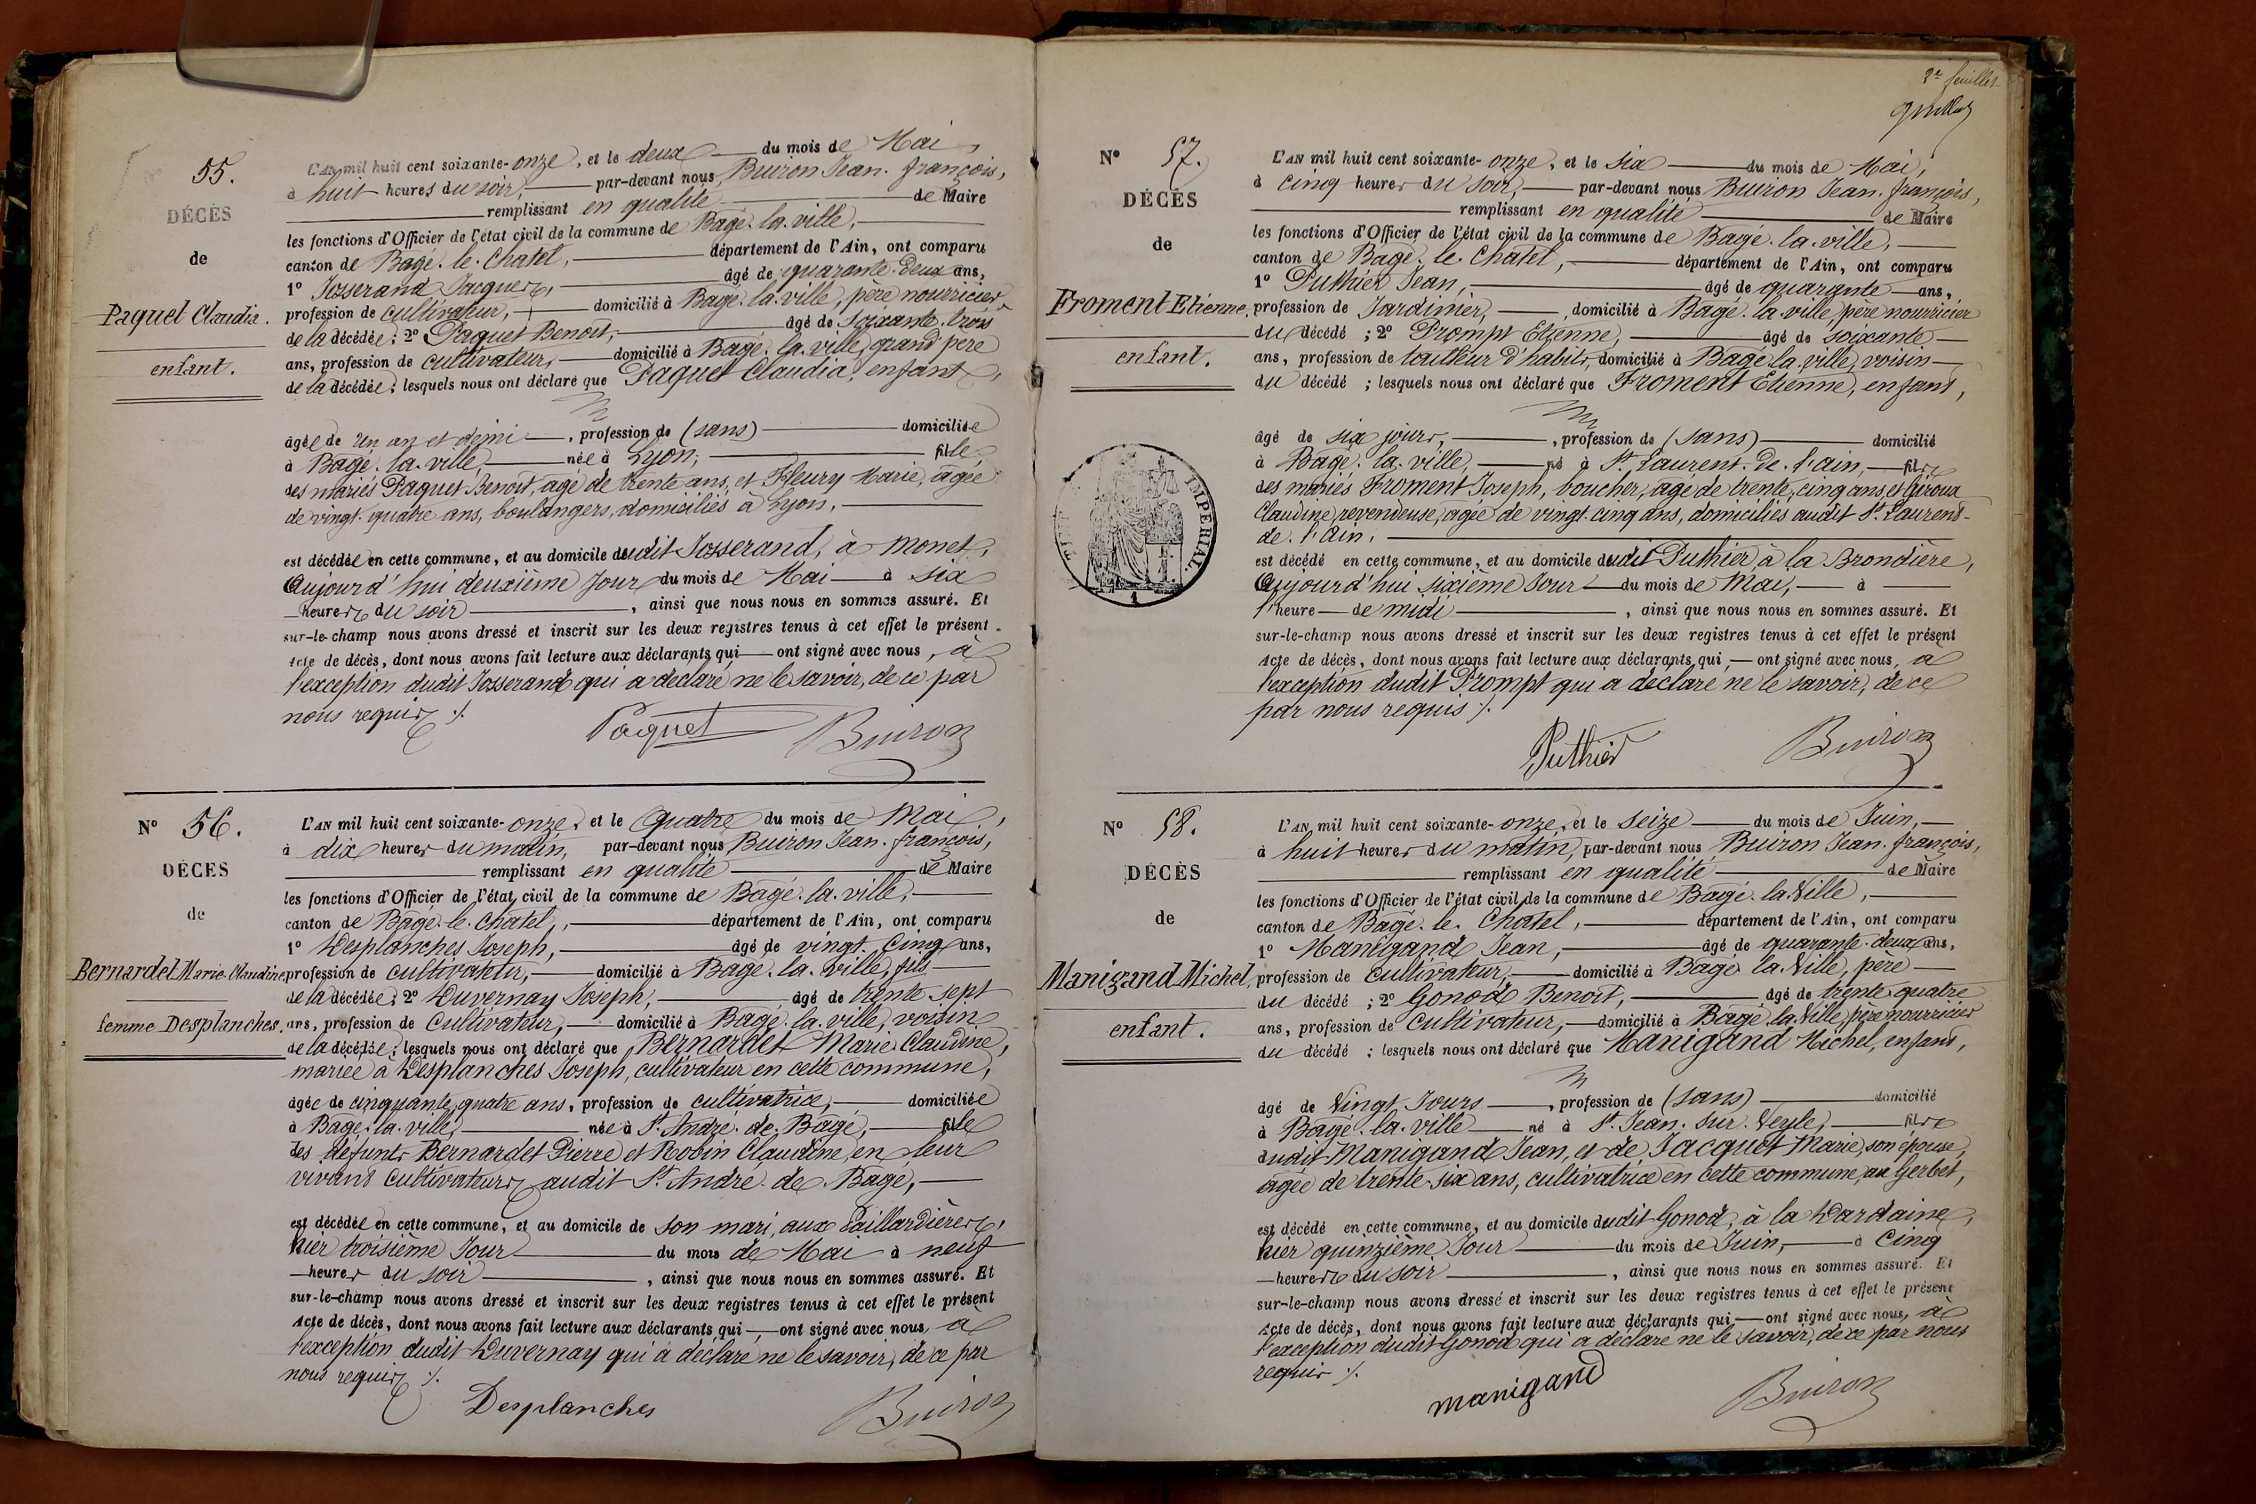 55.
DÉCÈS
de
Paquet Claudia.
enfant.
L'AN mil huit cent soixante-onze, et le deux du mois de Mai,
à huit heures du soir, par-devant nous Buiron Jean-françois,
remplissant en qualité de Maire
les fonctions d'Officier de l'état civil de la commune de Bagé-la-ville,
canton de Bagé-le-Chatel, département de l'Ain, ont comparu
1º Josserand Jacques, âgé de quarante-deux ans,
profession de cultivateur, domicilié à Bagé-la-ville, père nourricier
de la décédée; 2º Paquet Benoit, âgé de soixante-trois
ans, profession de cultivateur, domicilié à Bagé-la-ville, grand père
de la décédée; lesquels nous ont déclaré que Paquet Claudia, enfant,
âgée de un an et demi, profession de (sans) domiciliée
à Bagé-la-ville, née à Lyon, fille
des mariés Paquet Benoit, âgé de trente ans, et Fleury Marie, agée
de vingt-quatre ans, boulangers, domiciliés à Lyon,
est décédée en cette commune, et au domicile dudit Josserand, à Monet,
Aujourd'hui deuxième Jour du mois de Mai à six
heures du soir, ainsi que nous nous en sommes assuré. Et
sur-le-champ nous avons dressé et inscrit sur les deux registres tenus à cet effet le présent
Acte de décès, dont nous avons fait lecture aux déclarants qui ont signé avec nous, à
l'exception dudit Josserand qui a déclaré ne le savoir, de ce par
nous requis ./.
Paquet Buiron
Nº 56.
DÉCÈS
de
Bernardet Marie-Claudine
femme Desplanches.
L'AN mil huit cent soixante-onze, et le Quatre du mois de Mai,
à dix heures du matin, par-devant nous Buiron Jean-françois,
remplissant en qualité de Maire
les fonctions d'Officier de l'état civil de la commune de Bagé-la-ville,
canton de Bagé-le-Chatel, département de l'Ain, ont comparu
1º Desplanches Joseph, âgé de vingt-Cinq ans,
profession de cultivateur, domicilié à Bagé-la-ville, fils
de la décédée; 2º Duvernay Joseph, âgé de trente sept
ans, profession de Cultivateur, domicilié à Bagé-la-ville, voisin
de la décédée; lesquels nous ont déclaré que Bernardet Marie Claudine,
mariée à Desplanches Joseph, cultivateur en cette commune,
âgée de cinquante quatre ans, profession de cultivatrice, domiciliée
à Bagé-la-ville, née à St. André-de-Bagé, fille
des défunts Bernardet Pierre et Robin Claudine, en leur
vivant Cultivateurs audit St. André-de-Bagé,
est décédée en cette commune, et au domicile de son mari, aux Paillardières,
hier troisième Jour du mois de Mai à neuf
heures du soir, ainsi que nous nous en sommes assuré. Et
sur-le-champ nous avons dressé et inscrit sur les deux registres tenus à cet effet le présent
Acte de décès, dont nous avons fait lecture aux déclarants qui ont signé avec nous, à
l'exception dudit Duvernay qui a déclaré ne le savoir, de ce par
nous requis ./.
Desplanches Buiron
2e feuillet
Nº 57.
DÉCÈS
de
Froment Etienne,
enfant.
L'AN mil huit cent soixante-onze, et le six du mois de Mai,
à cinq heures du soir, par-devant nous Buiron Jean-françois,
remplissant en qualité de Maire
les fonctions d'Officier de l'état civil de la commune de Bagé-la-ville,
canton de Bagé-le-Chatel, département de l'Ain, ont comparu
1º Puthier Jean, âgé de quarante ans,
profession de Jardinier, domicilié à Bagé-la-ville, père nourricier
du décédé; 2º Prompt Etienne, âgé de soixante
ans, profession de tailleur d'habits, domicilié à Bagé-la-ville, voisin
du décédé; lesquels nous ont déclaré que Froment Etienne, enfant,
âgé de six jours, profession de (sans) domicilié
à Bagé-la-ville, né à St. Laurent-de-l'ain, fils
des mariés Froment Joseph, boucher, agé de trente-cinq ans, et Giroux
Claudine, revendeuse, agée de vingt-cinq ans, domiciliés audit St. Laurent-
de-l'Ain,
est décédé en cette commune, et au domicile dudit Puthier à la Brondière,
Aujourd'hui sixième Jour du mois de Mai, à
l'heure de midi, ainsi que nous nous en sommes assuré. Et
sur-le-champ nous avons dressé et inscrit sur les deux registres tenus à cet effet le présent
Acte de décès, dont nous avons fait lecture aux déclarants qui ont signé avec nous, à
l'exception dudit Prompt qui a déclaré ne le savoir, de ce
par nous requis ./.
TIMBRE IMPÉRIAL.
1
Puthier Buiron
Nº 58.
DÉCÈS
de
Manigand Michel,
enfant.
L'AN mil huit cent soixante-onze, et le seize du mois de Juin,
à huit heures du matin, par-devant nous Buiron Jean-françois,
remplissant en qualité de Maire
les fonctions d'Officier de l'état civil de la commune de Bagé-la-Ville,
canton de Bagé-le-Chatel, département de l'Ain, ont comparu
1º Manigand Jean, âgé de quarante-deux ans,
profession de cultivateur, domicilié à Bagé la Ville, père
du décédé; 2º Gonod Benoit, âgé de trente quatre
ans, profession de Cultivateur, domicilié à Bagé-la-Ville, père nourricier
du décédé; lesquels nous ont déclaré que Manigand Michel, enfant,
âgé de Vingt Jours, profession de (sans) domicilié
à Bagé-la-ville né à St. Jean-sur-Veyle, fils
dudit Manigand Jean, et de Jacquet Marie, son épouse,
agée de trente-six ans, cultivatrice en cette commune, au Gerbet,
est décédé en cette commune, et au domicile dudit Gonod, à la Dardaine,
hier quinzième Jour du mois de Juin, à Cinq
heures du soir, ainsi que nous nous en sommes assuré. Et
sur-le-champ nous avons dressé et inscrit sur les deux registres tenus à cet effet le présent
Acte de décès, dont nous avons fait lecture aux déclarants qui ont signé avec nous, à
l'exception dudit Gonod qui a déclaré ne le savoir, de ce par nous
requis ./.
manigand Buiron